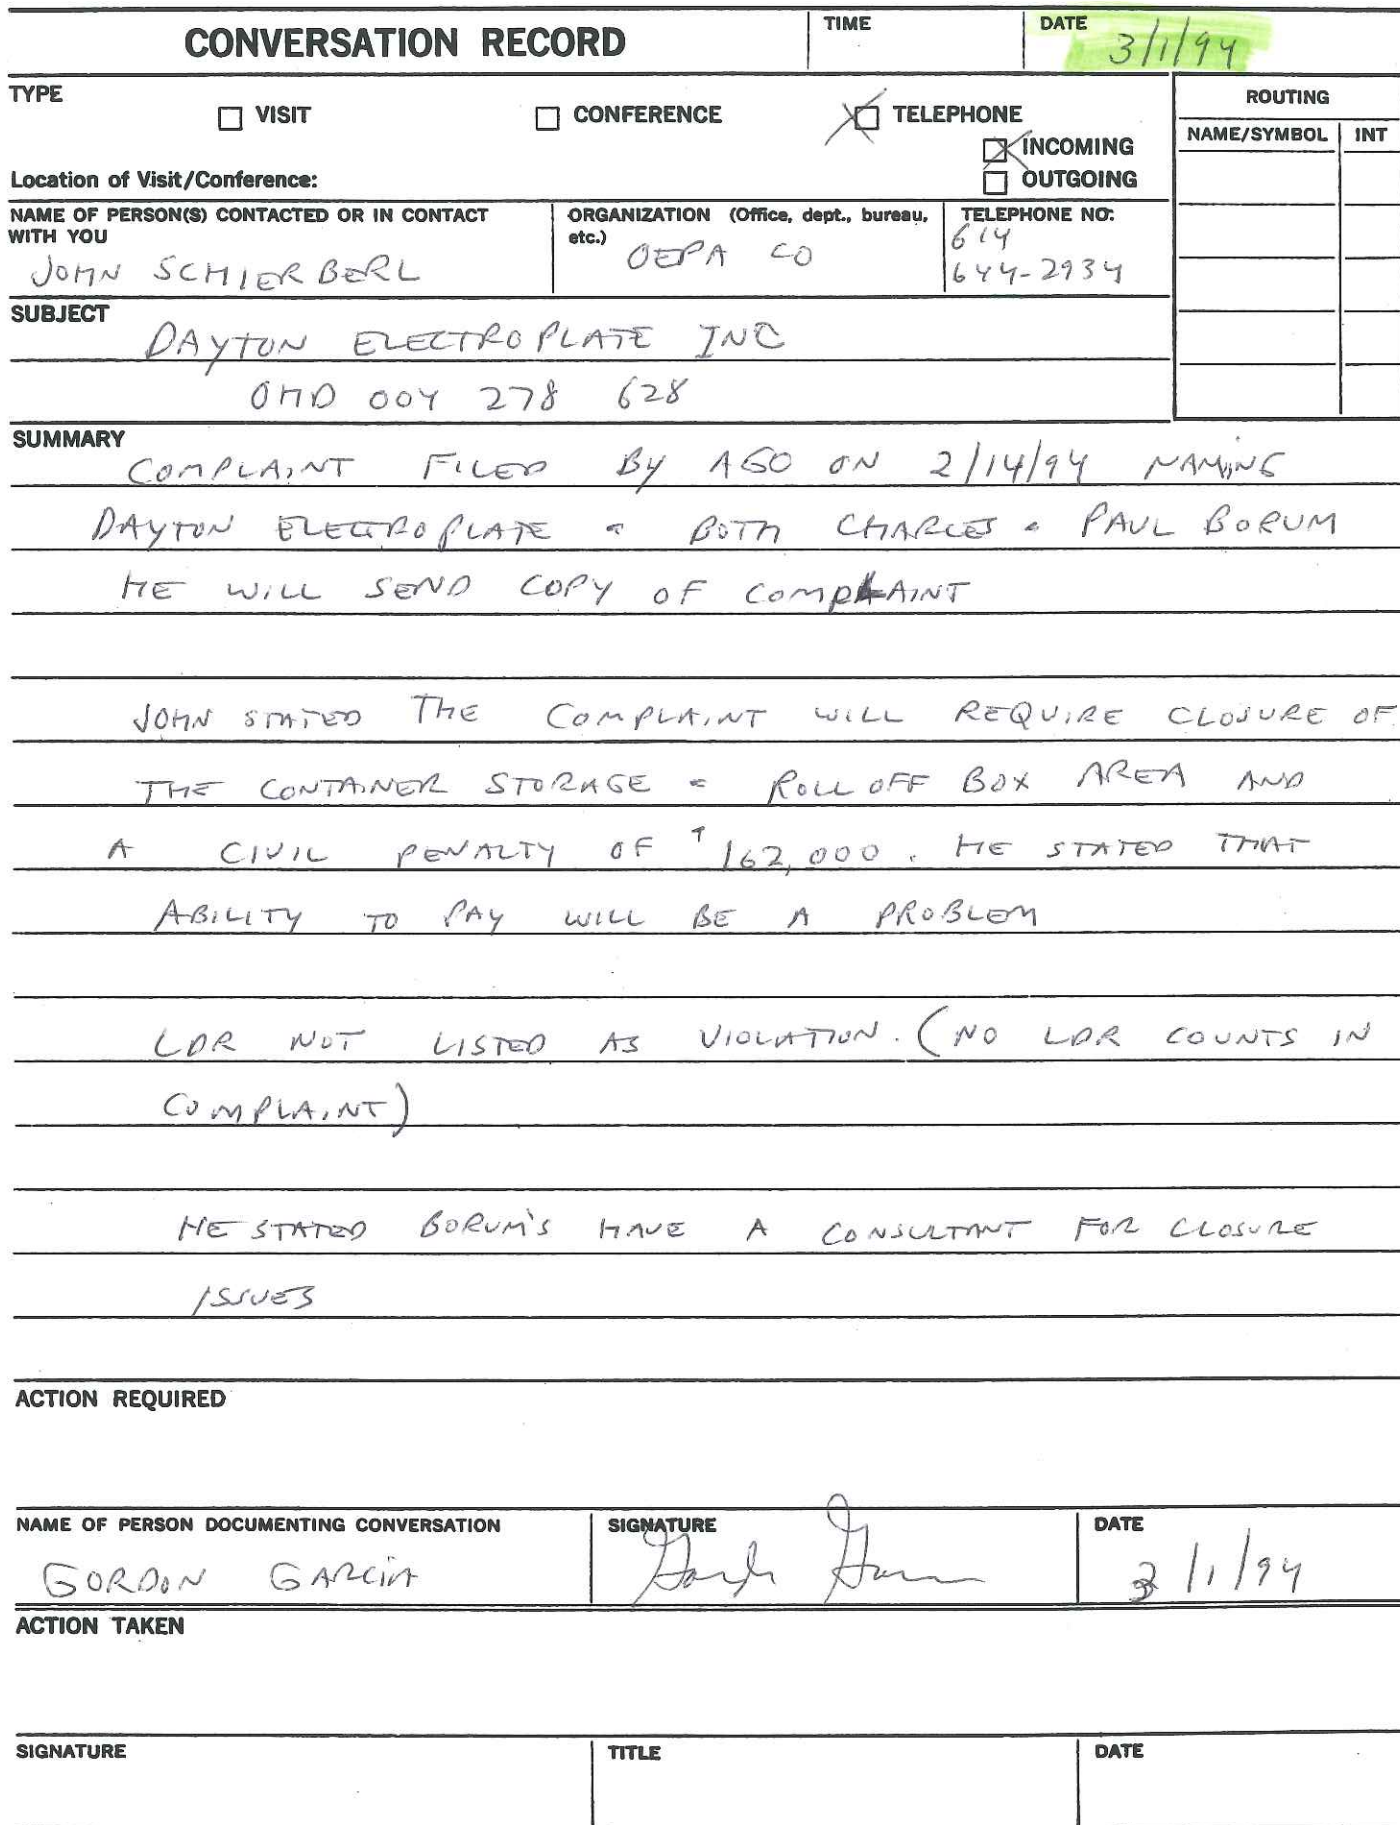 CONVERSATION RECORD
TIME
DATE
3/1/94
TYPE
VISIT
CONFERENCE
TELEPHONE
INCOMING
OUTGOING
Location of Visit/Conference:
ROUTING
NAME/SYMBOL INT
NAME OF PERSON(S) CONTACTED OR IN CONTACT
WITH YOU
JOHN SCHIERBERL
ORGANIZATION (Office, dept., bureau,
etc.)
OEPA CO
TELEPHONE NO:
614
644-2934
SUBJECT
DAYTON ELECTROPLATE INC
OHD 004 278 628
SUMMARY
COMPLAINT FILED BY AGO ON 2/14/94 NAMING
DAYTON ELECTROPLATE & BOTH CHARLES & PAUL BORUM
HE WILL SEND COPY OF COMPLAINT
JOHN STATED THE COMPLAINT WILL REQUIRE CLOSURE OF
THE CONTAINER STORAGE & ROLL OFF BOX AREA AND
A CIVIL PENALTY OF $162,000. HE STATED THAT
ABILITY TO PAY WILL BE A PROBLEM
LDR NOT LISTED AS VIOLATION. (NO LDR COUNTS IN
COMPLAINT)
HE STATED BORUM'S HAVE A CONSULTANT FOR CLOSURE
ISSUES
ACTION REQUIRED
NAME OF PERSON DOCUMENTING CONVERSATION
GORDON GARCIA
SIGNATURE
DATE
3/1/94
ACTION TAKEN
SIGNATURE
TITLE
DATE